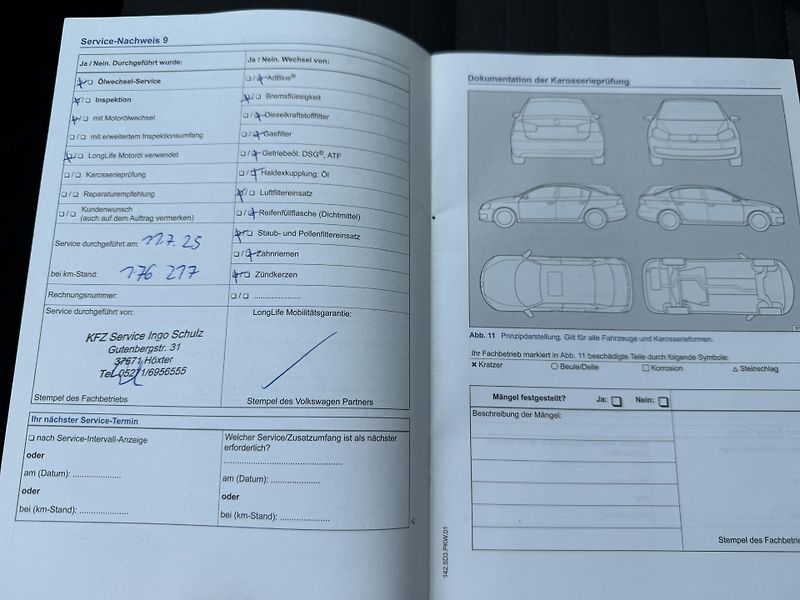 Service-Nachweis 9
Ja / Nein. Durchgeführt wurde:
☒/☐ Ölwechsel-Service
☒/☐ Inspektion
☒/☐ mit Motorölwechsel
☐/☐ mit erweitertem Inspektionsumfang
☒/☐ LongLife Motoröl verwendet
☐/☐ Karosserieprüfung
☐/☐ Reparaturempfehlung
☐/☐ Kundenwunsch
(auch auf dem Auftrag vermerken)
Service durchgeführt am: 11.7.25
bei km-Stand: 176 217
Rechnungsnummer:
Service durchgeführt von:
KFZ Service Ingo Schulz
Gutenbergstr. 31
37671 Höxter
Tel. 05271/6956555
Stempel des Fachbetriebs
Ja / Nein. Wechsel von:
☐/☒ AdBlue®
☒/☐ Bremsflüssigkeit
☐/☒ Dieselkraftstofffilter
☐/☒ Gasfilter
☐/☒ Getriebeöl: DSG®, ATF
☐/☒ Haldexkupplung: Öl
☒/☐ Luftfiltereinsatz
☐/☒ Reifenfüllflasche (Dichtmittel)
☒/☐ Staub- und Pollenfiltereinsatz
☐/☒ Zahnriemen
☒/☐ Zündkerzen
☐/☐ ......................
LongLife Mobilitätsgarantie:
Stempel des Volkswagen Partners
Ihr nächster Service-Termin
☐ nach Service-Intervall-Anzeige
oder
am (Datum): ....................
oder
bei (km-Stand): ....................
Welcher Service/Zusatzumfang ist als nächster
erforderlich?
................................................
am (Datum): ....................
oder
bei (km-Stand): ....................
Dokumentation der Karosserieprüfung
Abb. 11 Prinzipdarstellung. Gilt für alle Fahrzeuge und Karosserieformen.
Ihr Fachbetrieb markiert in Abb. 11 beschädigte Teile durch folgende Symbole:
× Kratzer ○ Beule/Delle □ Korrosion △ Steinschlag
Mängel festgestellt? Ja: ☐ Nein: ☐
Beschreibung der Mängel:
Stempel des Fachbetrie
142.5D3.PKW.01